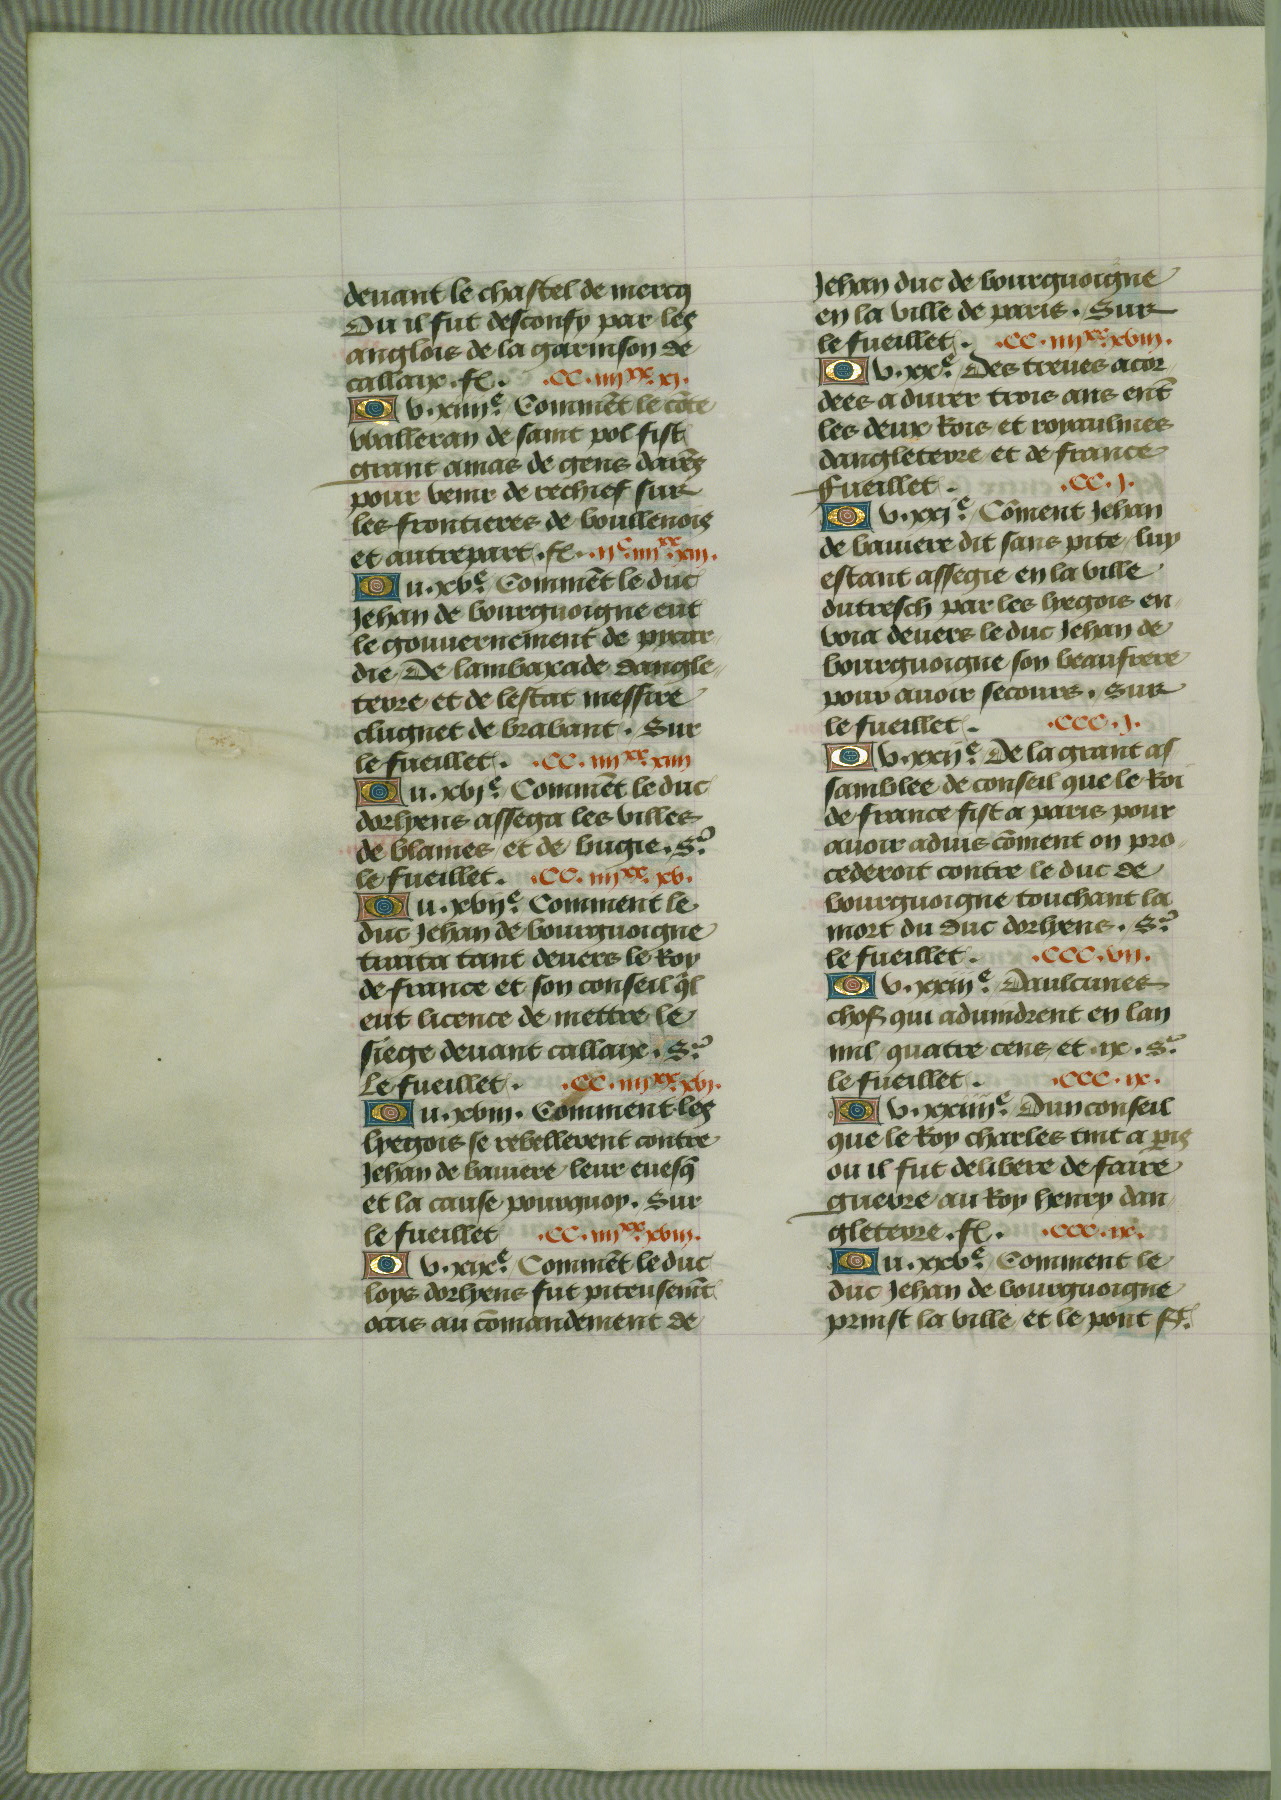 deuant le chastel de mercq
Ou il fut desconfy par les
anglois de la garinson de
callaix. fᵉ. .CC.iiiiˣˣ.xj.
Ou v.xiiiiᵉ. Comment le cōte
Walleran de saint pol fist
grant amas de gens darmes
pour venir de rechief sur
les frontieres de boullenois
et autrepart. fᵉ. .ijᶜ.iiiiˣˣ.xiij.
O u.xvᵉ. Commēt le duc
Jehan de bourguoigne eut
le gouuernement de picar
die. De lambaxade dangle
terre et de lestat messire
clugnet de brabant. Sur
le fueillet. .CC.iiiiˣˣ.xiiij
O u.xvjᵉ. Commēt le duc
dorlyens assega les villes
de blames et de bugie. Sʳ
le fueillet. .CC.iiiiˣˣ.xv.
O u.xvijᵉ. Comment le
duc Jehan de bourguoigne
traita tant deuers le Roy
de france et son conseil ql̄
eut licence de mettre le
siege deuant callaix. Sʳ
Le fueillet. .CC.iiiiˣˣ.xvj.
O u.xviij. Comment les
lyegois se rebellerent contre
Jehan de bauiere leur euesq̄
et la cause pourquoy. Sur
le fueillet .CC.iiiiˣˣ.xviij.
O v.xixᵉ. Commēt le duc
loys dorlyens fut piteusemt̄
occis au cōmandement de
Jehan duc de bourguoigne
en la ville de paris. Sur
le fueillet. .CC.iiiiˣˣ.xviij.
O v.xxᵉ. Des treues acor
dees a durer trois ans ent̄
les deux Rois et royaulmes
dangleterre et de france
Fueillet. .CC.j.
O v.xxjᵉ. Cōment Jehan
de bauiere dit sans pite luy
estant assegie en la ville
dutresch par les lyegois en
voia deuers le duc Jehan de
bourguoigne son beaufrere
pour auoir secours. Sur
le fueillet. .CCC.j.
O v.xxijᵉ. De la grant as
samblee de conseil que le Roi
de france fist a paris pour
auoir aduis cōment on pro
cederoit contre le duc de
bourguoigne touchant la
mort du duc dorlyens. Sʳ
le fueillet. .CCC.vij.
O v.xxiijᵉ. Daulcunes
choses qui aduindrent en lan
mil quatre cens et ix. Sʳ
le fueillet. .CCC.ix.
O v.xxiiijᵉ. Dun conseil
que le Roy charles tint a p̄is
ou il fut delibere de faire
guerre au Roy henry dan
gleterre. fᵉ. .CCC.ix.
O u.xxvᵉ. Comment le
duc Jehan de bourguoigne
prinst la ville et le pont